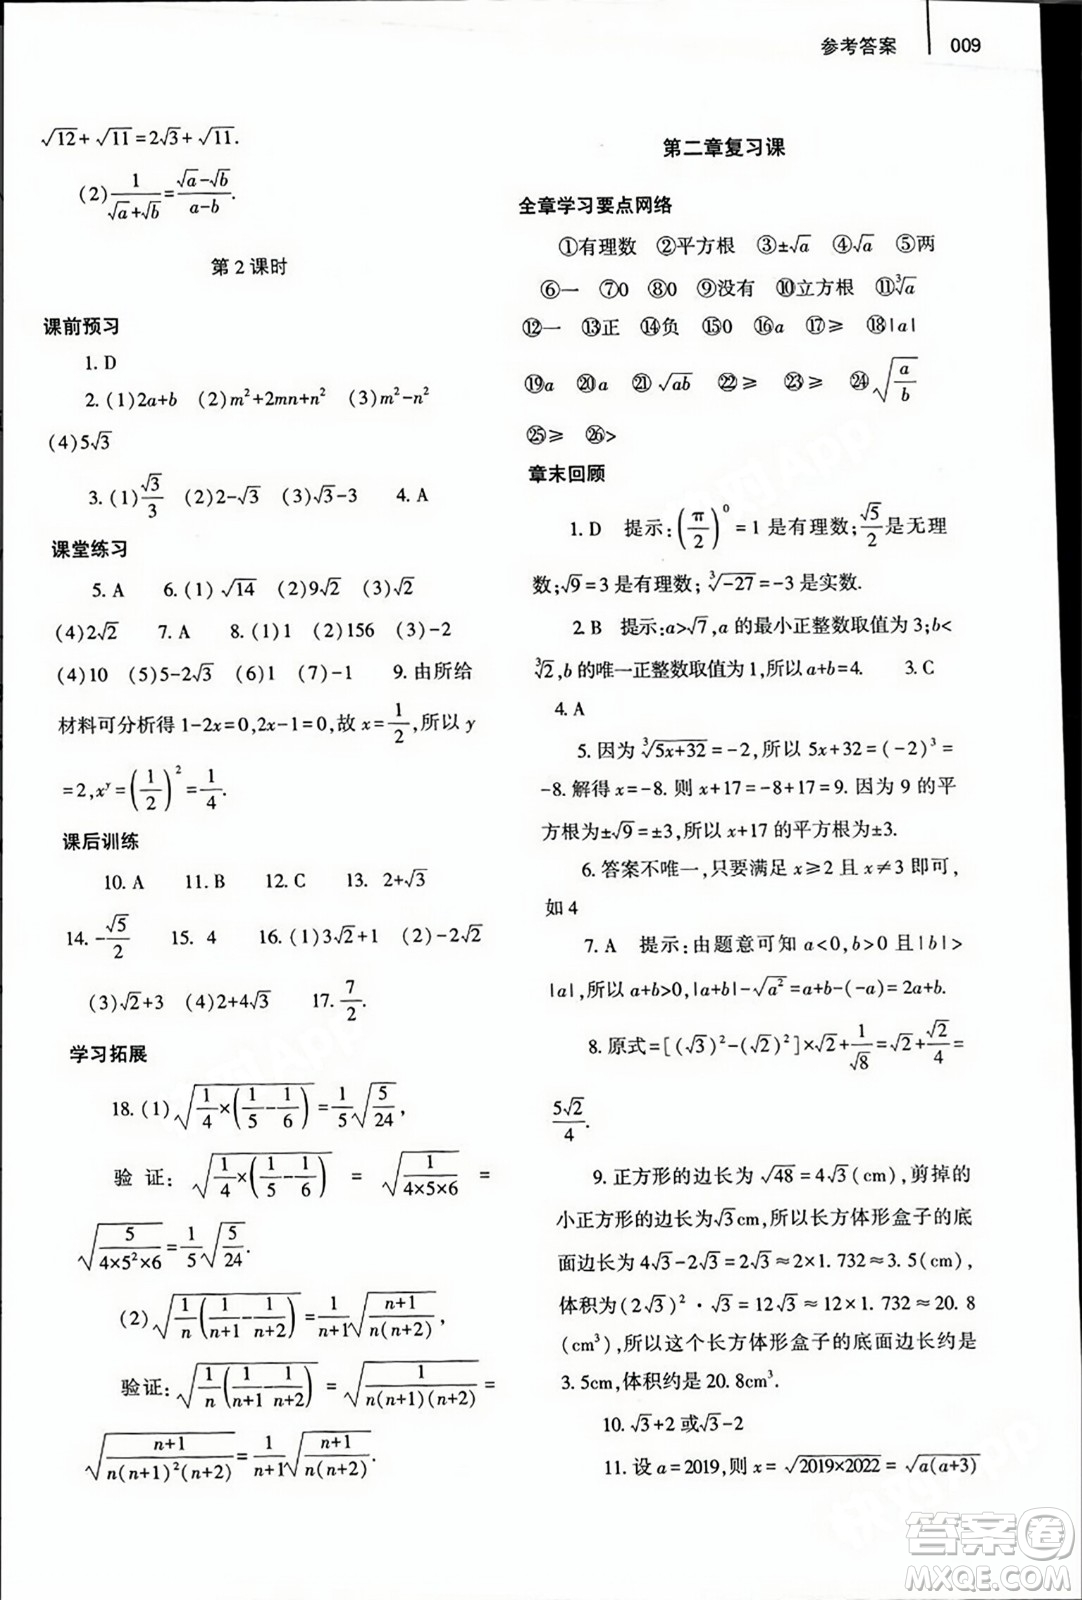 参考答案 009
√12+√11=2√3+√11.
(2) 1/(√a+√b)=(√a-√b)/(a-b).
第2课时
课前预习
1. D
2. (1)2a+b (2)m²+2mn+n² (3)m²-n²
(4)5√3
3. (1)√3/3 (2)2-√3 (3)√3-3 4. A
课堂练习
5. A 6. (1)√14 (2)9√2 (3)√2
(4)2√2 7. A 8. (1)1 (2)156 (3)-2
(4)10 (5)5-2√3 9. 由所给
材料可分析得1-2x=0,2x-1=0,故x=1/2,所以y
=2,xʸ=(1/2)²=1/4.
课后训练
10. A 11. B 12. C 13. 2+√3
14. -√5/2 15. 4 16. (1)3√2+1 (2)-2√2
(3)√2+3 (4)2+4√3 17. 7/2.
学习拓展
18. (1)√(1/4×(1/5-1/6))=1/5√(5/24),
验证:√(1/4×(1/5-1/6)) = √(1/(4×5×6)) =
√(5/(4×5²×6))=1/5√(5/24).
(2)√(1/n(1/(n+1)-1/(n+2)))=1/(n+1)√((n+1)/(n(n+2))),
验证:√(1/n(1/(n+1)-1/(n+2)))=√(1/(n(n+1)(n+2)))=
√((n+1)/(n(n+1)²(n+2)))=1/(n+1)√((n+1)/(n(n+2))).
第二章复习课
全章学习要点网络
①有理数 ②平方根 ③±√a ④√a ⑤两
⑥一 ⑦0 ⑧0 ⑨没有 ⑩立方根 ⑪∛a
⑫一 ⑬正 ⑭负 ⑮0 ⑯a ⑰≥ ⑱|a|
⑲a ⑳a ㉑√ab ㉒≥ ㉓≥ ㉔√(a/b)
㉕≥ ㉖>
章末回顾
1. D 提示:(π/2)⁰=1是有理数;√5/2是无理
数;√9=3是有理数;∛-27=-3是实数.
2. B 提示:a>√7,a的最小正整数取值为3;b<
∛2,b的唯一正整数取值为1,所以a+b=4. 3. C
4. A
5. 因为∛(5x+32)=-2,所以5x+32=(-2)³=
-8.解得x=-8.则x+17=-8+17=9.因为9的平
方根为±√9=±3,所以x+17的平方根为±3.
6. 答案不唯一,只要满足x≥2且x≠3即可,
如4
7. A 提示:由题意可知a<0,b>0且|b|>
|a|,所以a+b>0,|a+b|-√a²=a+b-(-a)=2a+b.
8. 原式=[(√3)²-(√2)²]×√2+1/√8=√2+√2/4=
5√2/4.
9. 正方形的边长为√48=4√3(cm),剪掉的
小正方形的边长为√3cm,所以长方体形盒子的底
面边长为4√3-2√3=2√3≈2×1.732≈3.5(cm),
体积为(2√3)²·√3=12√3≈12×1.732≈20.8
(cm³),所以这个长方体形盒子的底面边长约是
3.5cm,体积约是20.8cm³.
10. √3+2或√3-2
11. 设a=2019,则x=√(2019×2022)=√(a(a+3))
答案圈
MXQE.COM